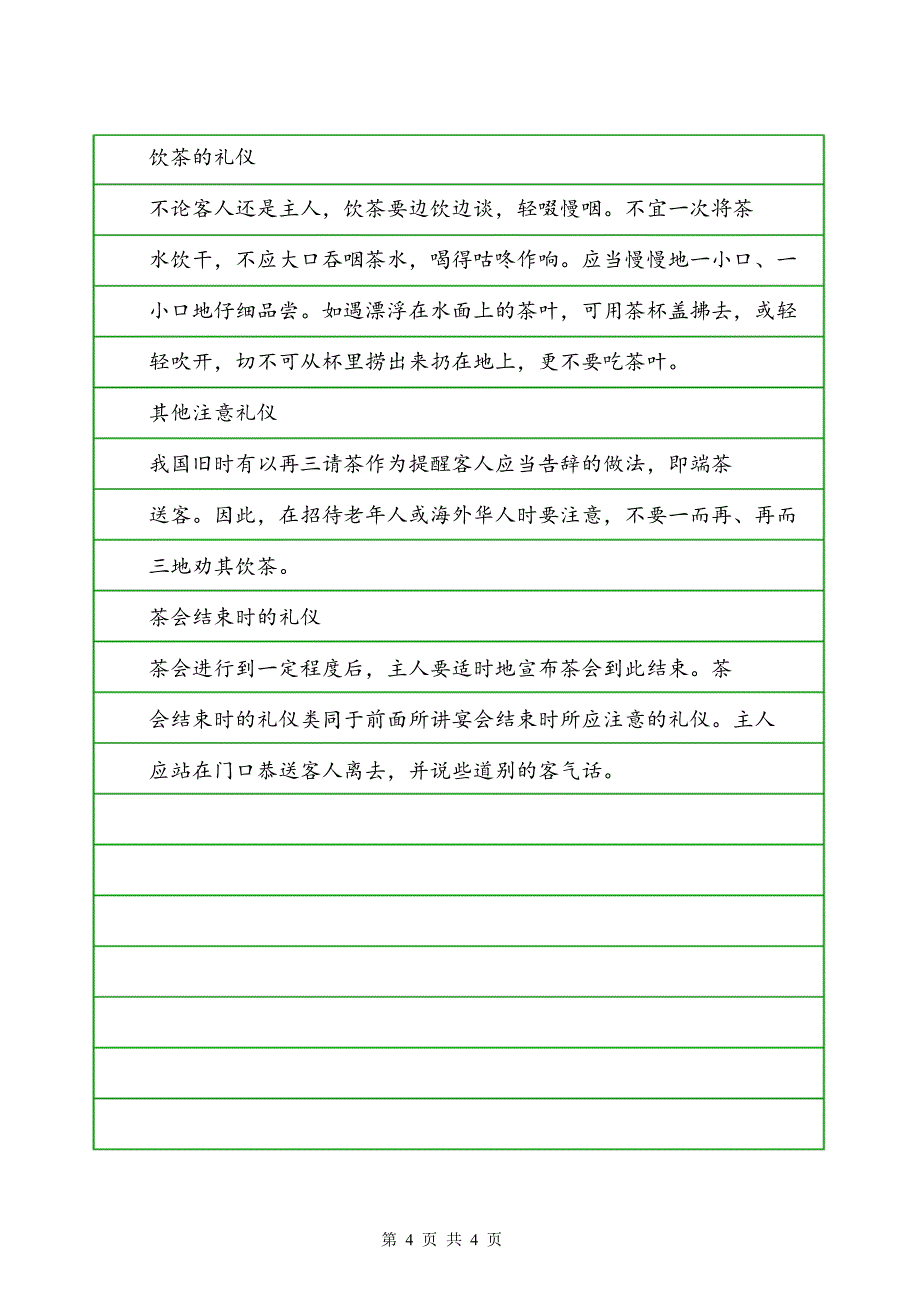 饮茶的礼仪
不论客人还是主人，饮茶要边饮边谈，轻啜慢咽。不宜一次将茶
水饮干，不应大口吞咽茶水，喝得咕咚作响。应当慢慢地一小口、一
小口地仔细品尝。如遇漂浮在水面上的茶叶，可用茶杯盖拂去，或轻
轻吹开，切不可从杯里捞出来扔在地上，更不要吃茶叶。
其他注意礼仪
我国旧时有以再三请茶作为提醒客人应当告辞的做法，即端茶
送客。因此，在招待老年人或海外华人时要注意，不要一而再、再而
三地劝其饮茶。
茶会结束时的礼仪
茶会进行到一定程度后，主人要适时地宣布茶会到此结束。茶
会结束时的礼仪类同于前面所讲宴会结束时所应注意的礼仪。主人
应站在门口恭送客人离去，并说些道别的客气话。
第 4 页 共 4 页